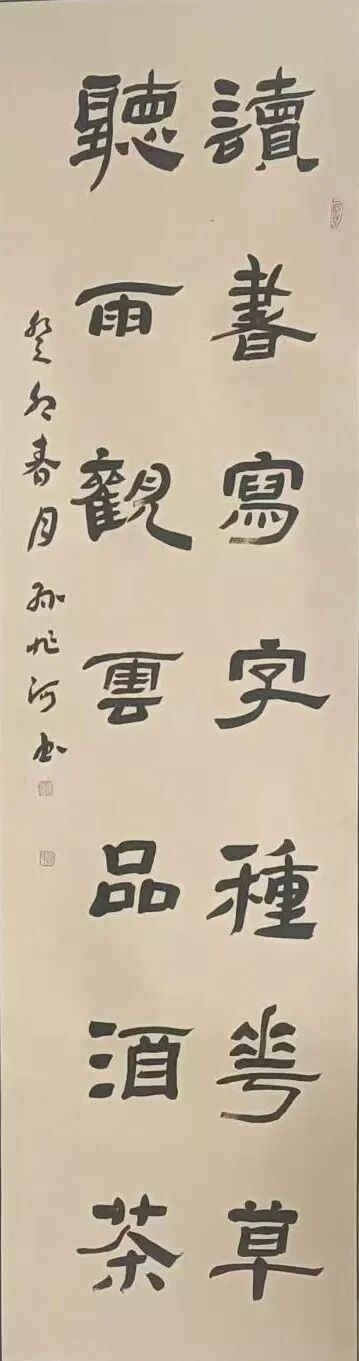 讀書寫字種花草
聽雨觀雲品酒茶
癸卯春月孫 河书